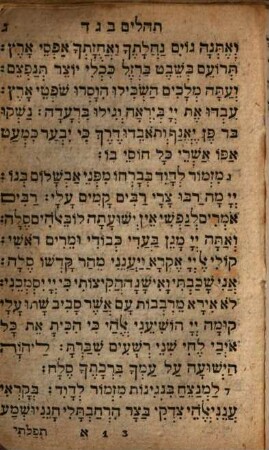 תהלים ב ג ד
ג
ואתנה גוים נחלתך ואחזתך אפסי ארץ׃
תרועם בשבט ברזל ככלי יוצר תנפצם׃
ועתה מלכים השכילו הוסרו שפטי ארץ׃
עבדו את יי ביראה וגילו ברעדה׃ נשקו
בר פן יאנף ותאבדו דרך כי יבער כמעט
אפו אשרי כל חוסי בו׃
ג מזמור לדוד בברחו מפני אבשלום בנו׃
יי מה רבו צרי רבים קמים עלי׃ רבים
אמרים לנפשי אין ישועתה לו באלהים סלה׃
ואתה יי מגן בעדי כבודי ומרים ראשי׃
קולי אל יי אקרא ויענני מהר קדשו סלה׃
אני שכבתי ואישנה הקיצותי כי יי יסמכני׃
לא אירא מרבבות עם אשר סביב שתו עלי׃
קומה יי הושיעני אלהי כי הכית את כל
איבי לחי שני רשעים שברת׃ ליהוה
הישועה על עמך ברכתך סלה׃
ד למנצח בנגינות מזמור לדוד׃ בקראי
ענני אלהי צדקי בצר הרחבת לי חנני ושמע
א 3 1 תפלתי